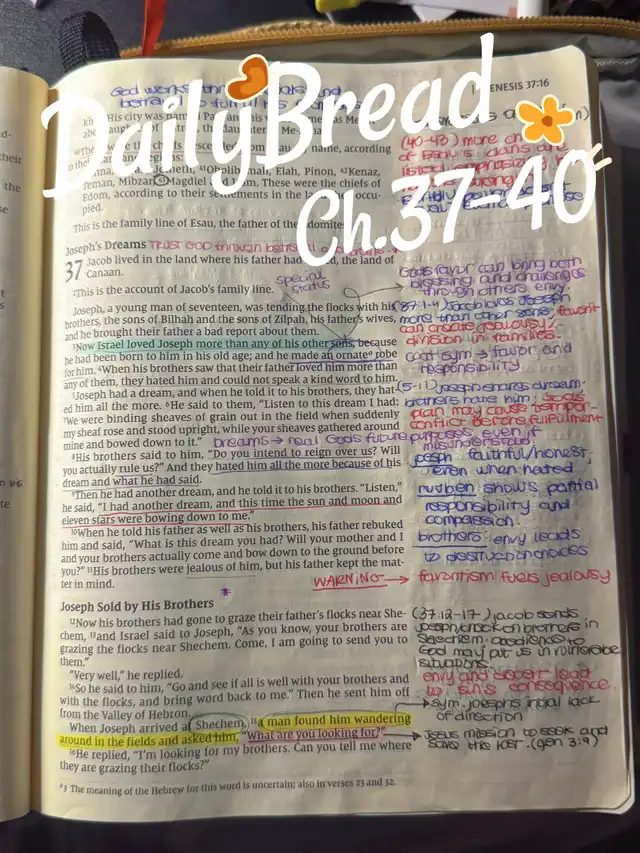 DailyBread
Ch.37-40
GENESIS 37:16
God works
His city was
according
Elah, Pinon, ⁴²Kenaz,
Teman, Mibzar, Magdiel
These were the chiefs of
Edom, according to their settlements in the
pied.
This is the family line of Esau, the father of the
(40-43) more
of Esau's clans are
Joseph's Dreams Trust God through betrayal
37 Jacob lived in the land where his father had the land of
Canaan.
²This is the account of Jacob's family line.
special
status
Joseph, a young man of seventeen, was tending the flocks with his
brothers, the sons of Bilhah and the sons of Zilpah, his father's wives,
and he brought their father a bad report about them.
³Now Israel loved Joseph more than any of his other sons, because
he had been born to him in his old age; and he made an ornateᵃ robe
for him. ⁴When his brothers saw that their father loved him more than
any of them, they hated him and could not speak a kind word to him.
⁵Joseph had a dream, and when he told it to his brothers, they hat-
ed him all the more. ⁶He said to them, "Listen to this dream I had:
⁷We were binding sheaves of grain out in the field when suddenly
my sheaf rose and stood upright, while your sheaves gathered around
mine and bowed down to it."
Dreams → real Gods future purposes, even if
misunderstood.
⁸His brothers said to him, "Do you intend to reign over us? Will
you actually rule us?" And they hated him all the more because of his
dream and what he had said.
⁹Then he had another dream, and he told it to his brothers. "Listen,"
he said, "I had another dream, and this time the sun and moon and
eleven stars were bowing down to me."
¹⁰When he told his father as well as his brothers, his father rebuked
him and said, "What is this dream you had? Will your mother and I
and your brothers actually come and bow down to the ground before
you?" ¹¹His brothers were jealous of him, but his father kept the mat-
ter in mind.
Gods favor can bring both
blessing and challenges
through others envy.
(37:1-4) Jacob loves Joseph
more than other sons; favorit
can create jealousy/
division in families.
coat sym → favor and
responsibility
(5-11) joseph shares dream.
brothers hate him; Gods
plan may cause tempor-
conflict before fulfillment
joseph faithful/honest,
even when hated
rueben shows partial
responsibility and
compassion.
brothers: envy leads
to destructive choices
WARNING → favoritism fuels jealousy
Joseph Sold by His Brothers
¹²Now his brothers had gone to graze their father's flocks near She-
chem, ¹³and Israel said to Joseph, "As you know, your brothers are
grazing the flocks near Shechem. Come, I am going to send you to
them."
"Very well," he replied.
¹⁴So he said to him, "Go and see if all is well with your brothers and
with the flocks, and bring word back to me." Then he sent him off
from the Valley of Hebron.
When Joseph arrived at Shechem, ¹⁵a man found him wandering
around in the fields and asked him, "What are you looking for?"
¹⁶He replied, "I'm looking for my brothers. Can you tell me where
they are grazing their flocks?"
(37:12-17) jacob sends
joseph check on brothers in
Shechem: obedience to
God may put us in vulnerable
situations.
envy and deceit lead
to sin's consequence.
→ sym. josephs initial lack
of direction
→ Jesus mission to seek and
save the lost. (gen 3:9)
ᵃ3 The meaning of the Hebrew for this word is uncertain; also in verses 23 and 32.
their
the